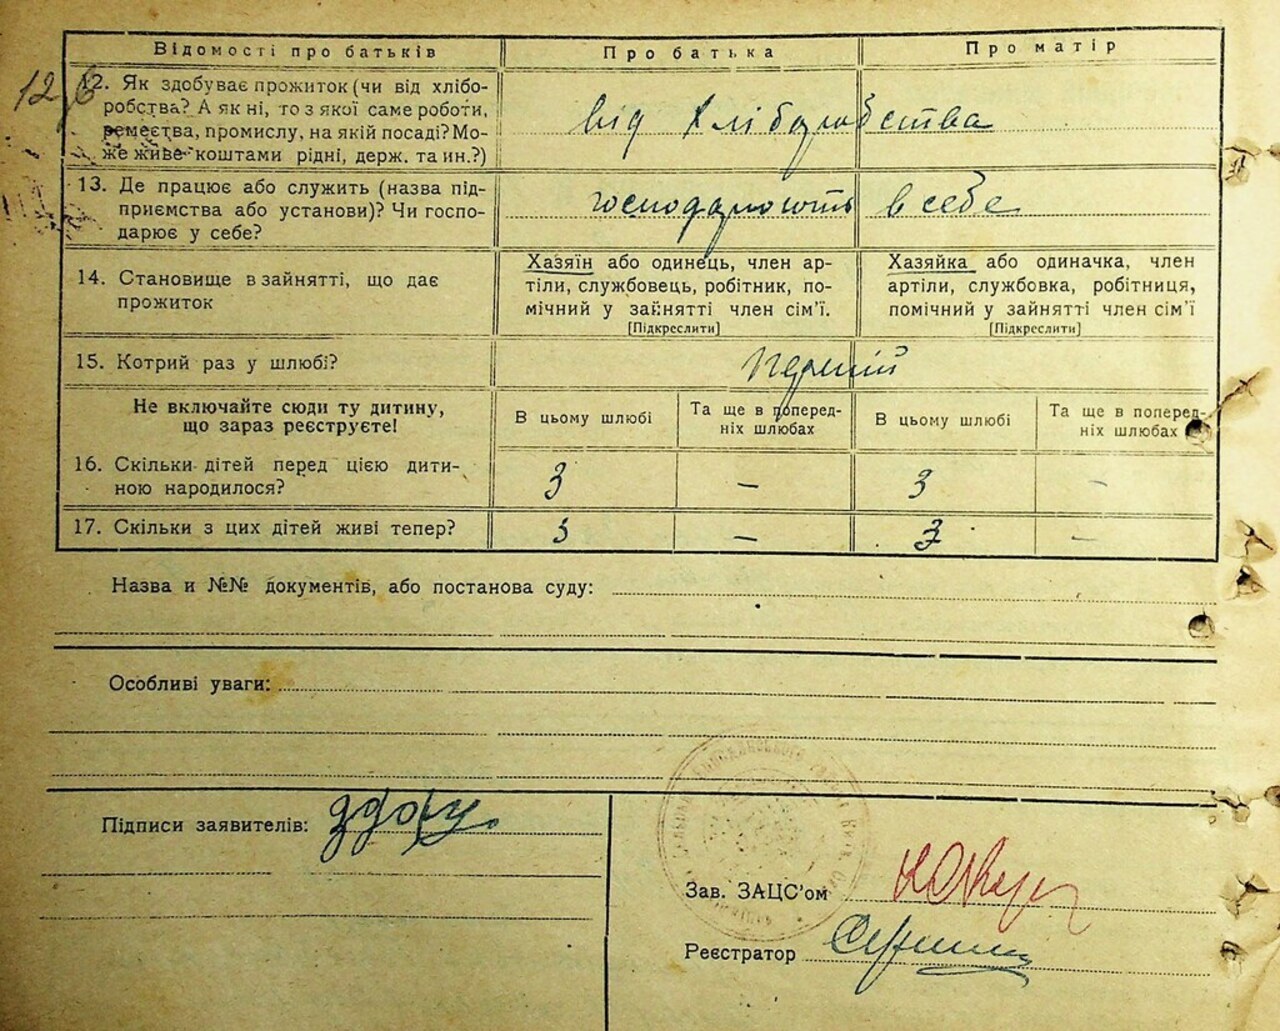 Відомості про батьків
Про батька
Про матір
12. Як здобуває прожиток (чи від хлібо-
робства? А як ні, то з якої саме роботи,
ремества, промислу, на якій посаді? Мо-
же живе коштами рідні, держ. та ин.?)
від хліборобства
13. Де працює або служить (назва під-
приємства або установи)? Чи госпо-
дарює у себе?
господарюють в себе
14. Становище в зайнятті, що дає
прожиток
Хазяїн або одинець, член ар-
тіли, службовець, робітник, по-
мічний у зайнятті член сім'ї.
[Підкреслити]
Хазяйка або одиначка, член
артіли, службовка, робітниця,
помічний у зайнятті член сім'ї
[Підкреслити]
15. Котрий раз у шлюбі?
Перший
Не включайте сюди ту дитину,
що зараз реєструєте!
В цьому шлюбі
Та ще в поперед-
ніх шлюбах
В цьому шлюбі
Та ще в поперед-
ніх шлюбах
16. Скільки дітей перед цією дити-
ною народилося?
3 — 3 —
17. Скільки з цих дітей живі тепер?
3 — 3 —
Назва и №№ документів, або постанова суду:
Особливі уваги:
Підписи заявителів:
Зав. ЗАЦС'ом
Реєстратор